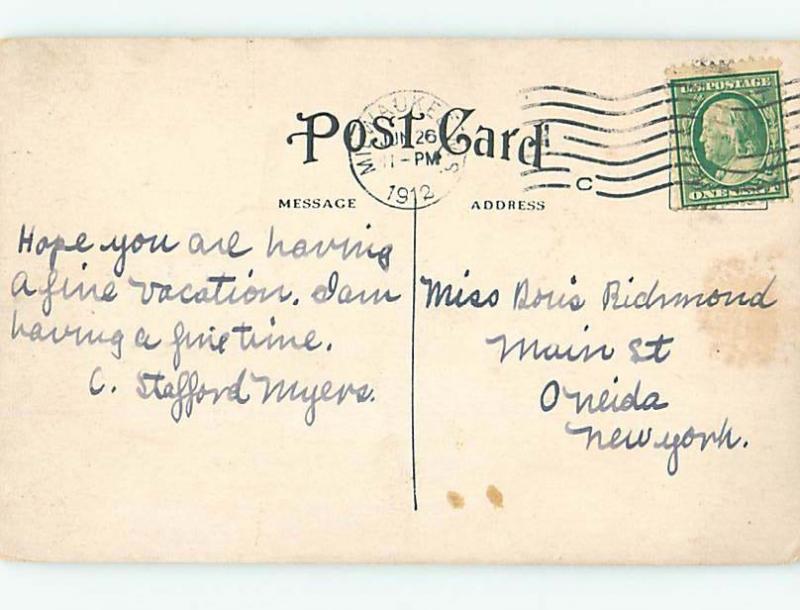 Post Card
MILWAUKEE
JUN 26
11 - PM
1912
C
U.S. POSTAGE
ONE CENT
MESSAGE
ADDRESS
Hope you are having
a fine vacation. I am
having a fine time.
C. Stafford Myers.
Miss Doris Richmond
Main St
Oneida
New York.